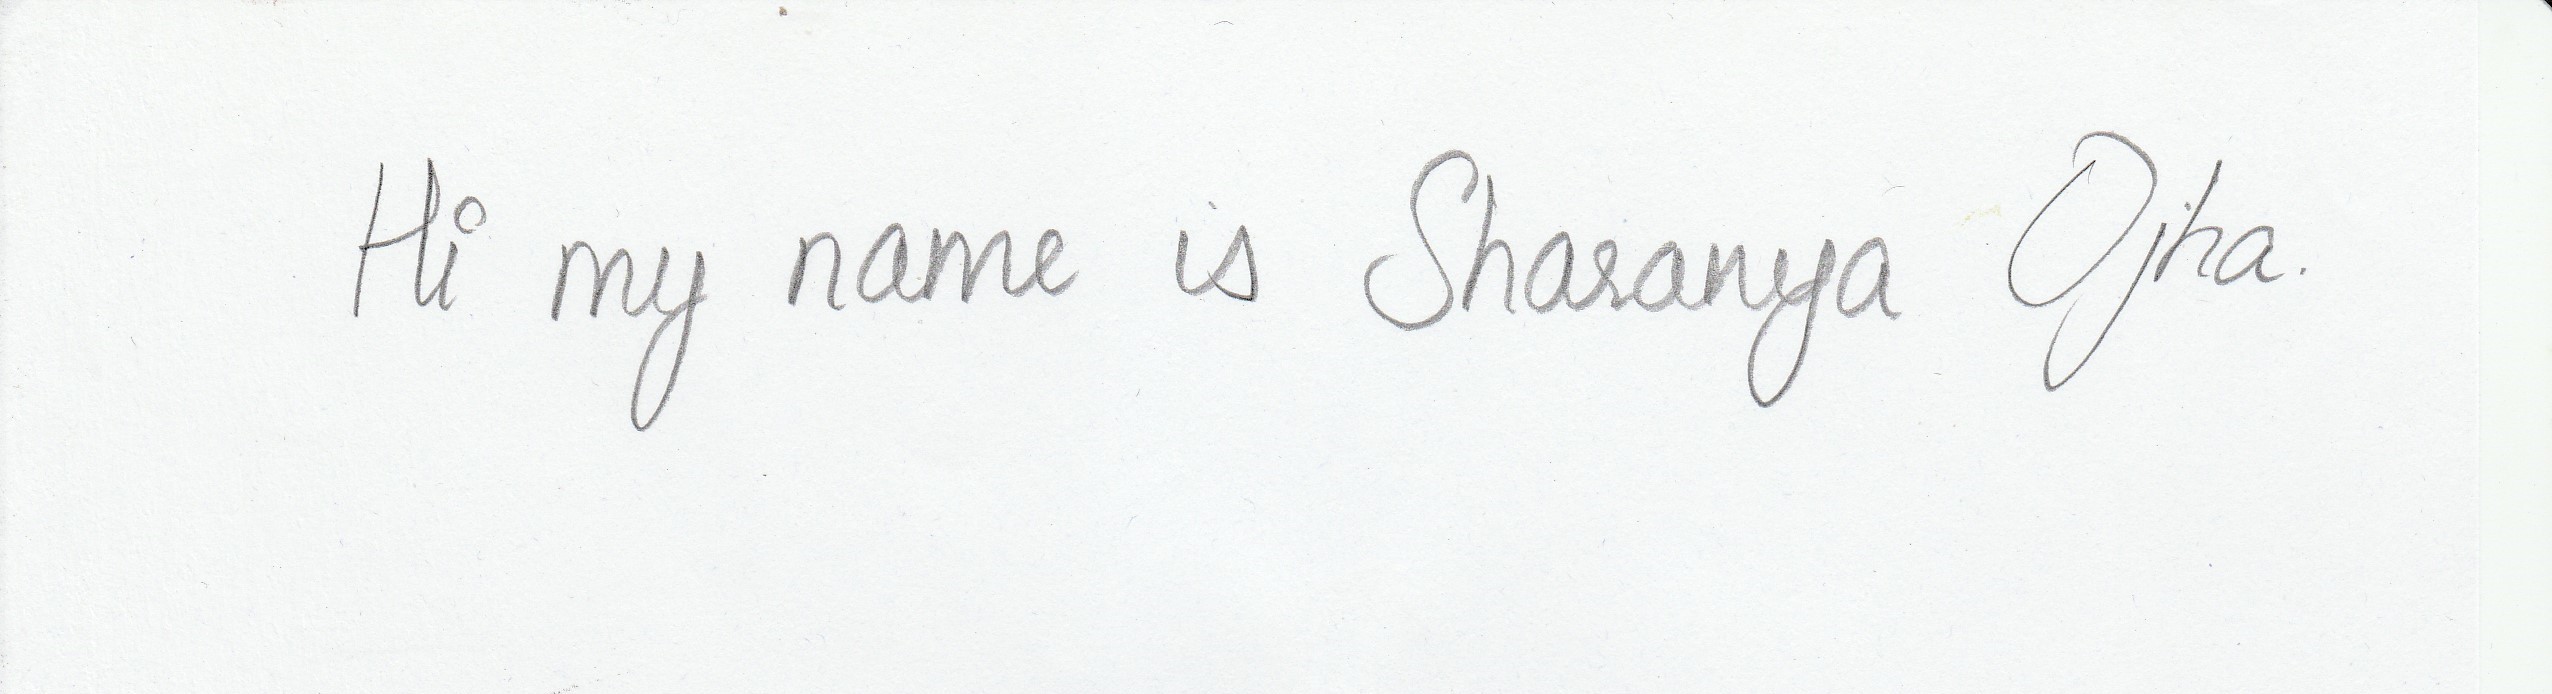 Hi my name is Sharanya Ojha.